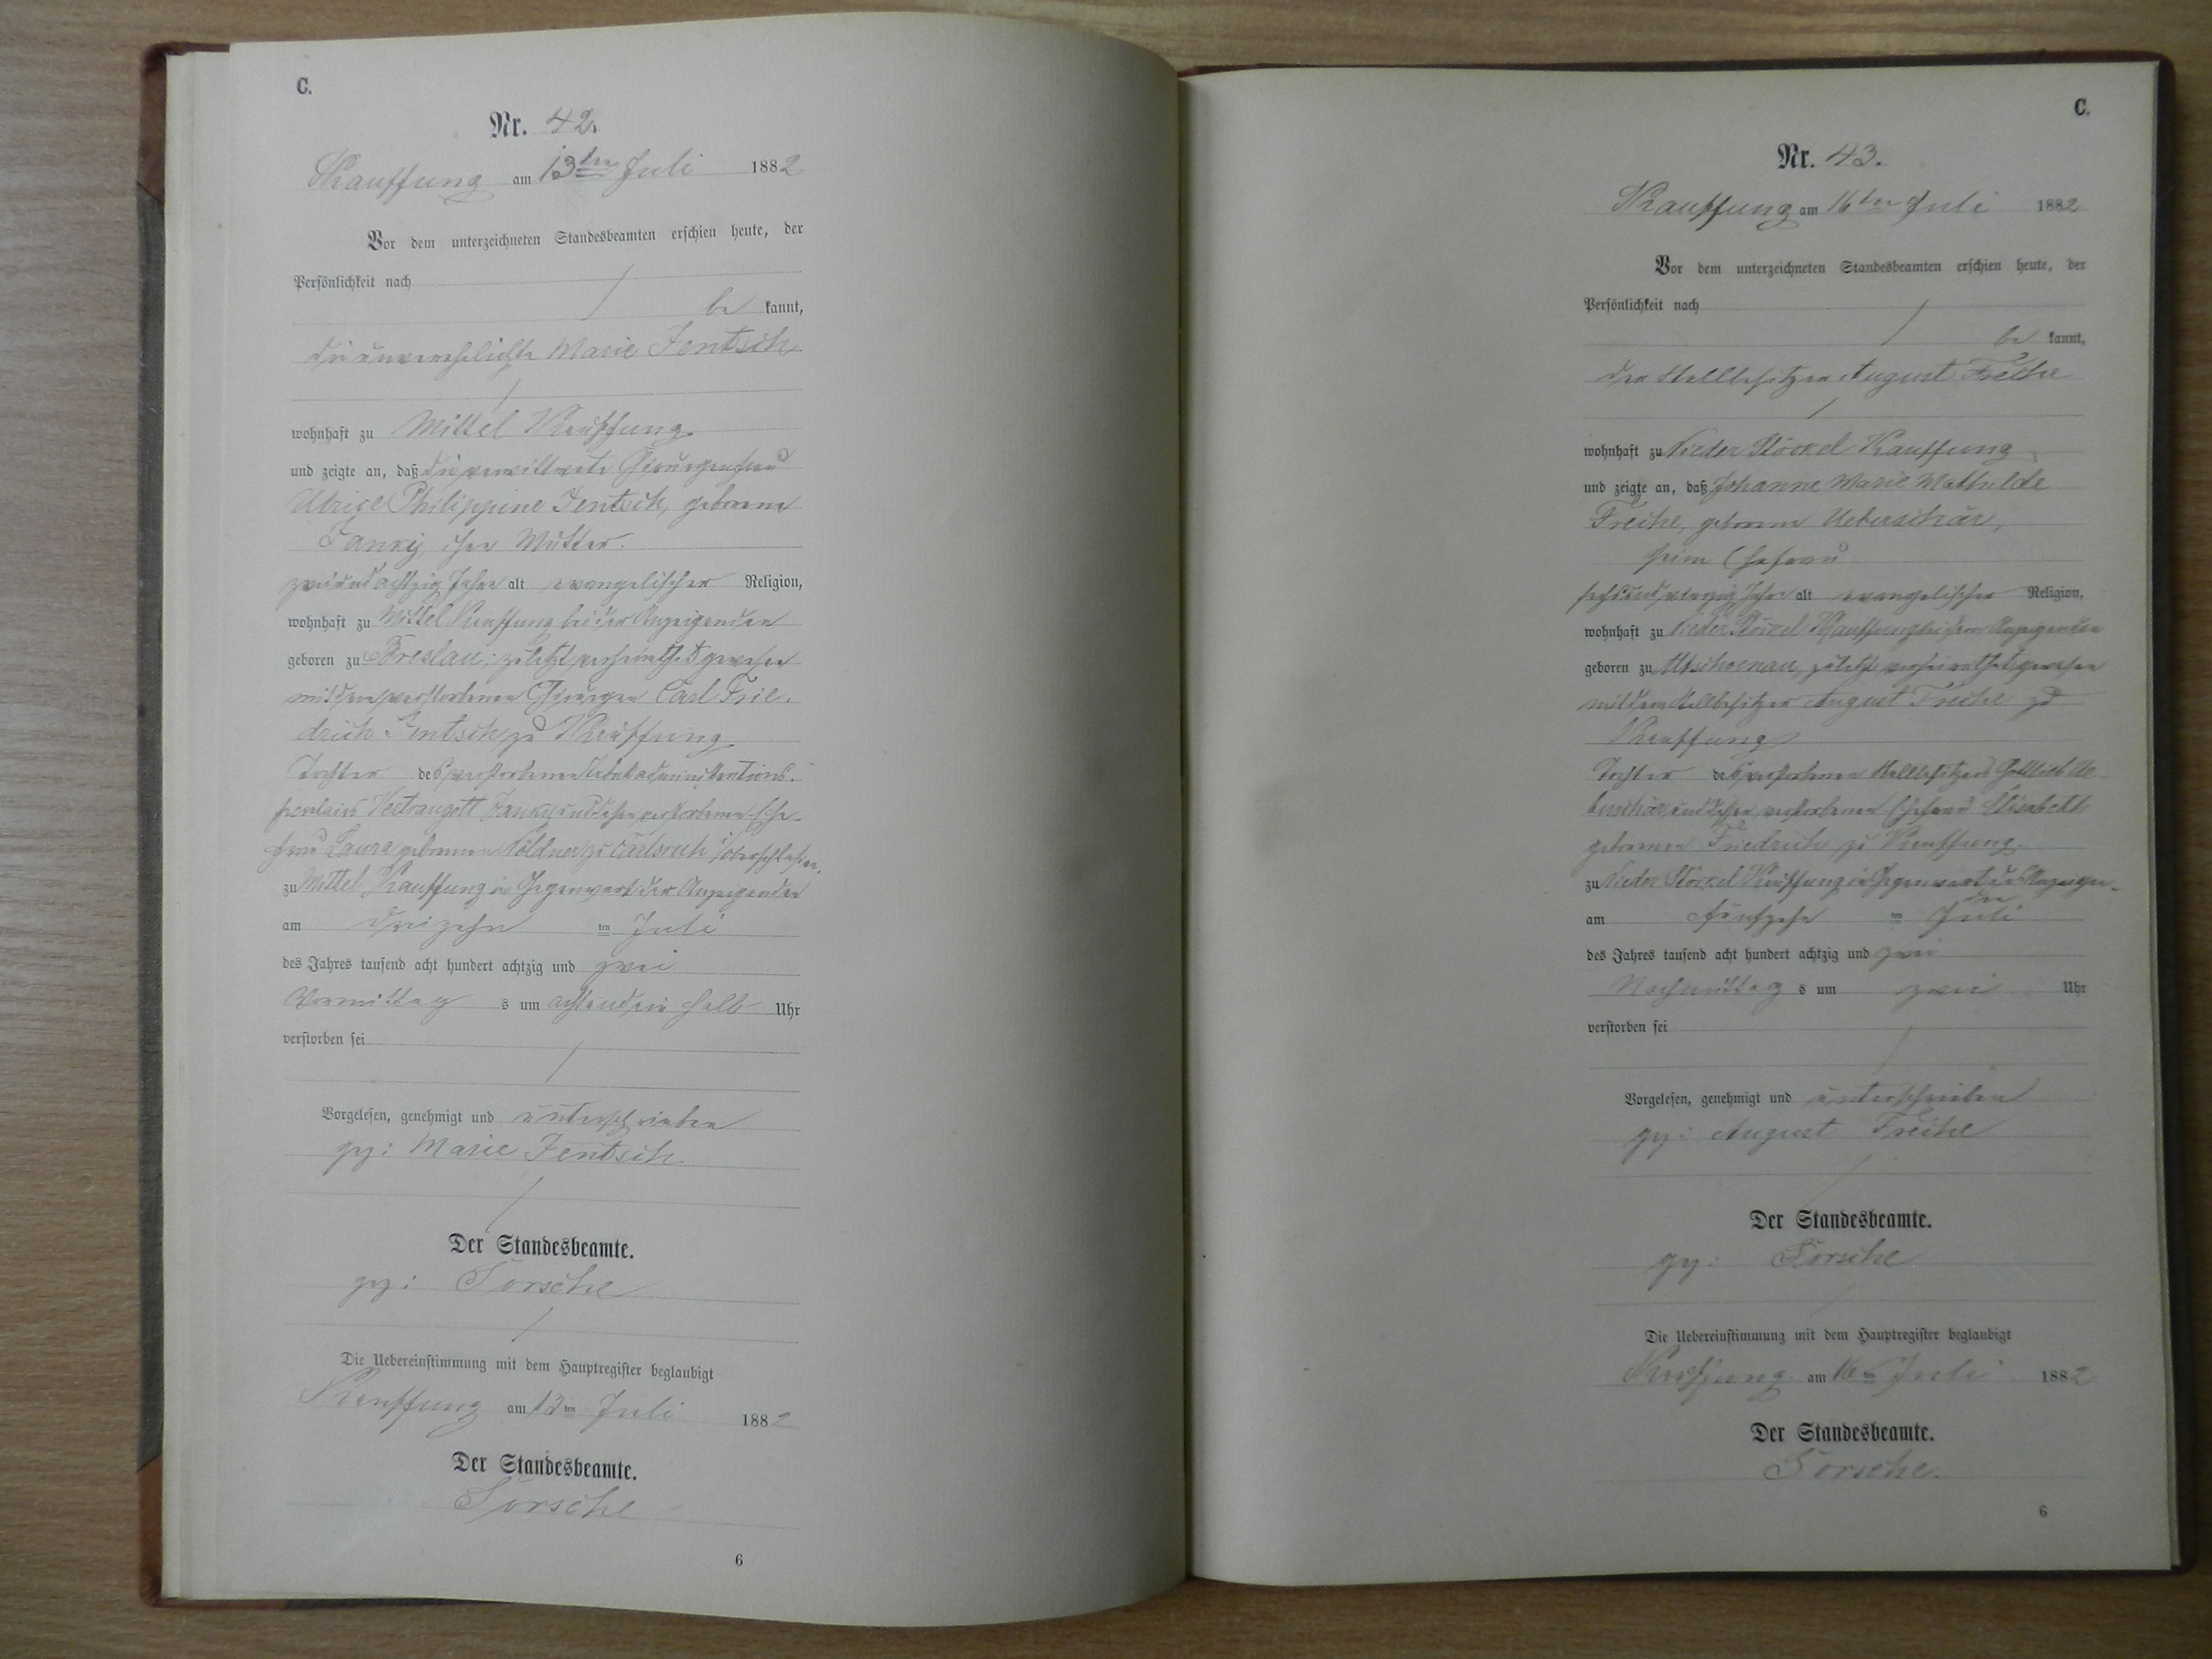 C.
Nr. 42.
Kauffung am 13ten Juli 1882
Vor dem unterzeichneten Standesbeamten erschien heute, der
Persönlichkeit nach
be kannt,
die unverehelichte Marie Jentsch
wohnhaft zu Mittel Kauffung
und zeigte an, daß die verwittwete Chirurgenfrau
Philippine Jentsch, geborene
ihre Mutter.
zweiundachtzig Jahre alt evangelischer Religion,
wohnhaft zu Mittel Kauffung bei der Anzeigenden
geboren zu Breslau; zuletzt verheirathet gewesen
mit dem verstorbenen Chirurgen Carl Frie-
drich Jentsch zu Kauffung
Tochter des verstorbenen
und dessen verstorbenen Ehe-
frau Laura geborenen Söldner zu Carlsruh Oberschlesien,
zu Mittel Kauffung in Gegenwart der Anzeigenden
am dreizehn ten Juli
des Jahres tausend acht hundert achtzig und zwei
Vormittag s um achtundein halb Uhr
verstorben sei
Vorgelesen, genehmigt und unterschrieben
gez: Marie Jentsch
Der Standesbeamte.
gez: Torsche
Die Uebereinstimmung mit dem Hauptregister beglaubigt
Kauffung am 13ten Juli 1882
Der Standesbeamte.
Torsche
6
C.
Nr. 43.
Kauffung am 16ten Juli 1882
Vor dem unterzeichneten Standesbeamten erschien heute, der
Persönlichkeit nach
be kannt,
der Stellbesitzer August Freche
wohnhaft zu Nieder Stöckel Kauffung
und zeigte an, daß Johanne Marie Mathilde
Freche, geborene Ueberschär,
seine Ehefrau
sechsundvierzig Jahre alt evangelischer Religion,
wohnhaft zu Nieder Stöckel Kauffung bei dem Anzeigenden
geboren zu Altschoenau, zuletzt verheirathet gewesen
mit dem Stellbesitzer August Freche zu
Kauffung
Tochter des verstorbenen Stellbesitzers Gottlieb Ue-
berschär und dessen verstorbenen Ehefrau Elisabeth
geborenen Friedrich, zu Kauffung.
zu Nieder Stöckel Kauffung in Gegenwart des Anzeigen-
den
am fünfzehn ten Juli
des Jahres tausend acht hundert achtzig und zwei
Nachmittag s um zwei Uhr
verstorben sei
Vorgelesen, genehmigt und unterschrieben
gez: August Freche
Der Standesbeamte.
gez: Torsche
Die Uebereinstimmung mit dem Hauptregister beglaubigt
Kauffung am 16ten Juli 1882
Der Standesbeamte.
Torsche.
6